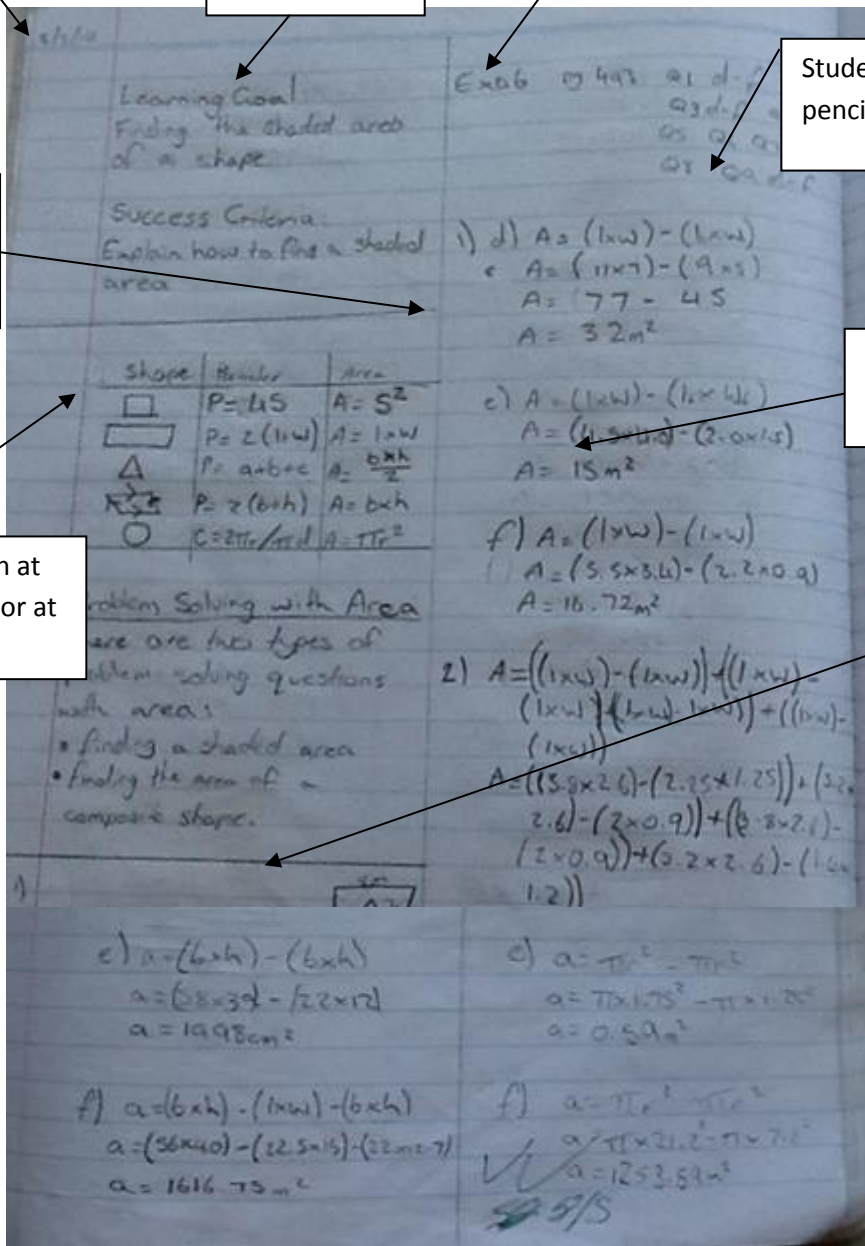 Learning Goal
Finding the shaded area
of a shape
Success Criteria:
Explain how to find a shaded
area
Shape Area
P= 4S A= S²
P= 2(l+w) A= l×w
P= a+b+c A= b×h/2
P= 2(b+h) A= b×h
C=2πr/πd A= πr²
Problem Solving with Area
There are two types of
problem solving questions
with area:
• finding a shaded area
• finding the area of a
composite shape.
1)
493 Q1 d-f
Q3 d-f
Q5
Q8 Q9 d-f
1) d) A= (l×w) - (l×w)
A= (11×7) - (9×5)
A= 77 - 45
A= 32m²
e) A = (l×w) -
- (2.0×1.5)
A= 15m²
f) A= (l×w) - (l×w)
A= (5.5×3.4) - (2.2×0.9)
A= 16.72m²
2) A=((l×w)-(l×w))+((l×w)-
(l×w))+((l×w)-
(l×w))
- (2.25×1.25))+
2.6)-(2×0.9))+(3.8×2.6)-
(2×0.9))+(5.2×2.6)-
1.2))
e) a=(b×h) - (b×h)
a=(58×39) - (22×12)
a= 1998cm²
f) a=(b×h) - (l×w) - (b×h)
a=(56×40) - (22.5×15) -
a= 1616.75m²
e) a= πr² - πr²
a= π×1.75² - π×
a= 0.59m²
f) a= πr² - πr²
a= π×21.2² - π×7.
a= 1253.59m²
5/5
Stude
penci
n at
or at